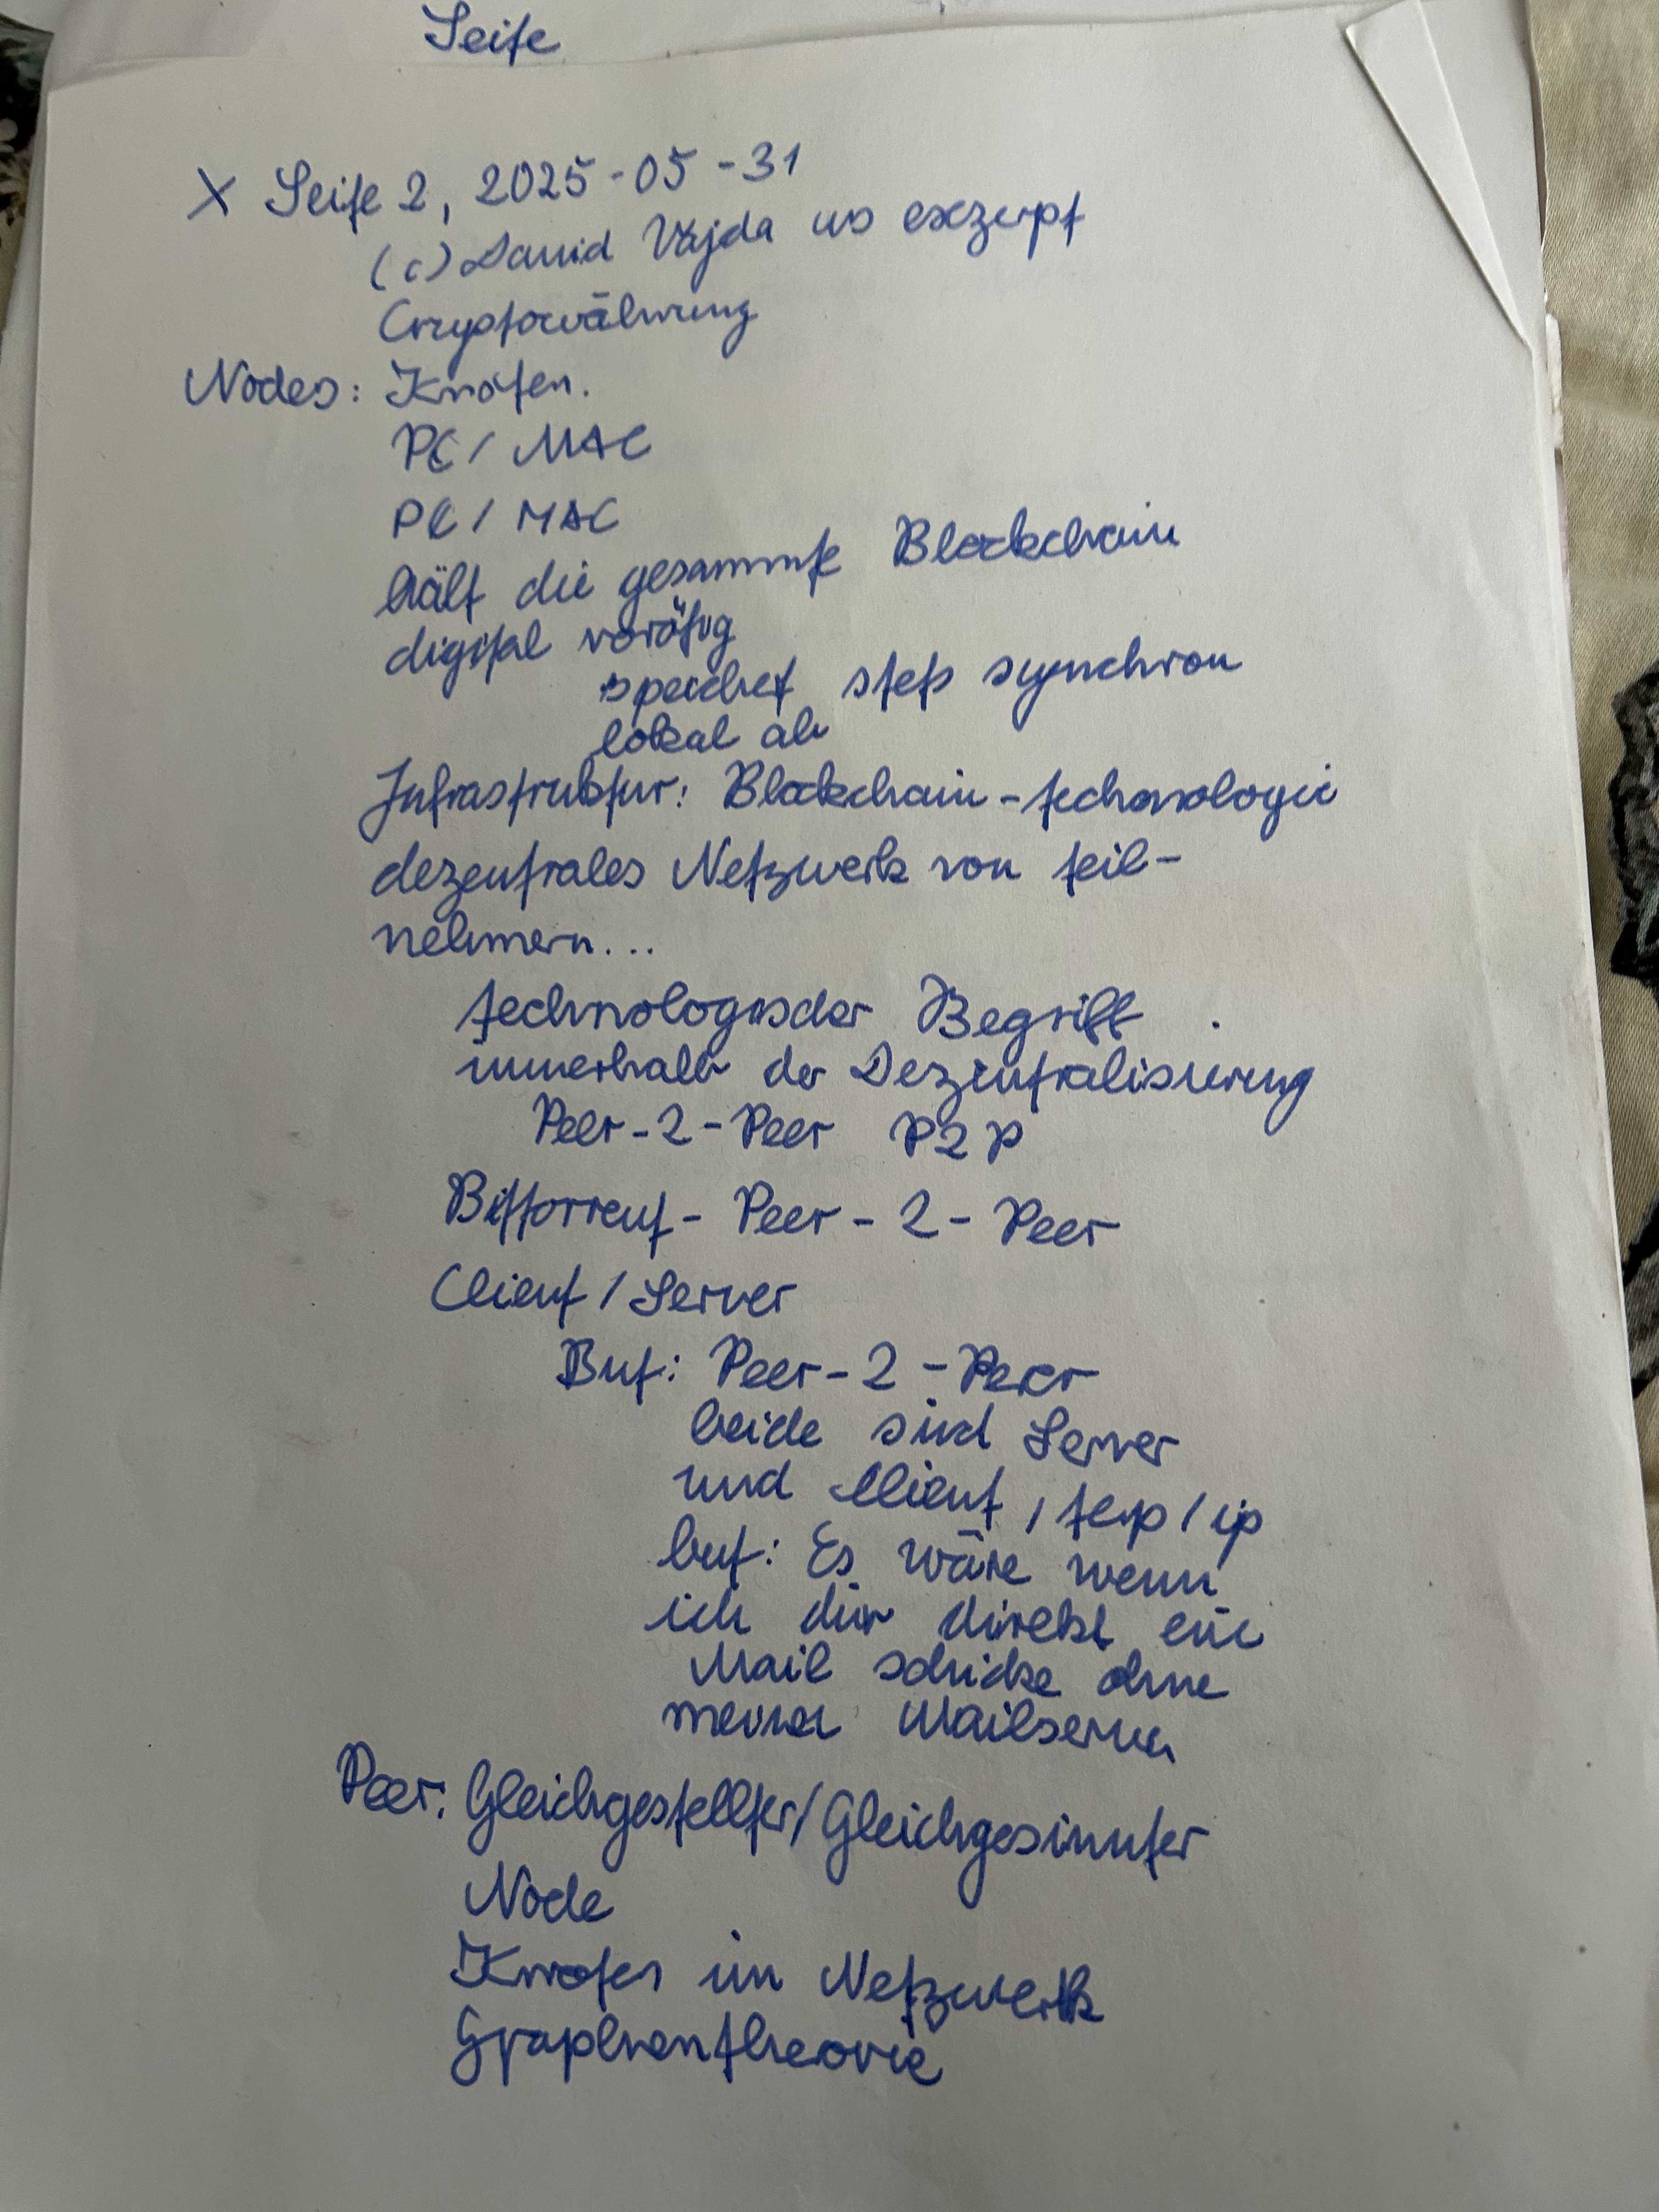 Seite
X Seite 2, 2025-05-31
(c) David Vajda us exzerpt
Cryptowährung
Nodes: Knoten.
PC / MAC
PC / MAC
hält die gesammte Blockchain
digital vorätig
speichet stets synchron
lokal ab
Infrastruktur: Blockchain-technologie
dezentrales Netzwerk von teil-
nehmern...
technologischer Begriff
innerhalb der Dezentralisierung
Peer-2-Peer P2P
Bittorrent - Peer-2-Peer
Client / Server
But: Peer-2-Peer
beide sind Server
und Client, tcp/ip
but: Es wäre wenn
ich dir direkt eine
Mail schicke ohne
meinen Mailserver
Peer: Gleichgestellter/Gleichgesinnter
Node
Knoten im Netzwerk
Graphentheorie